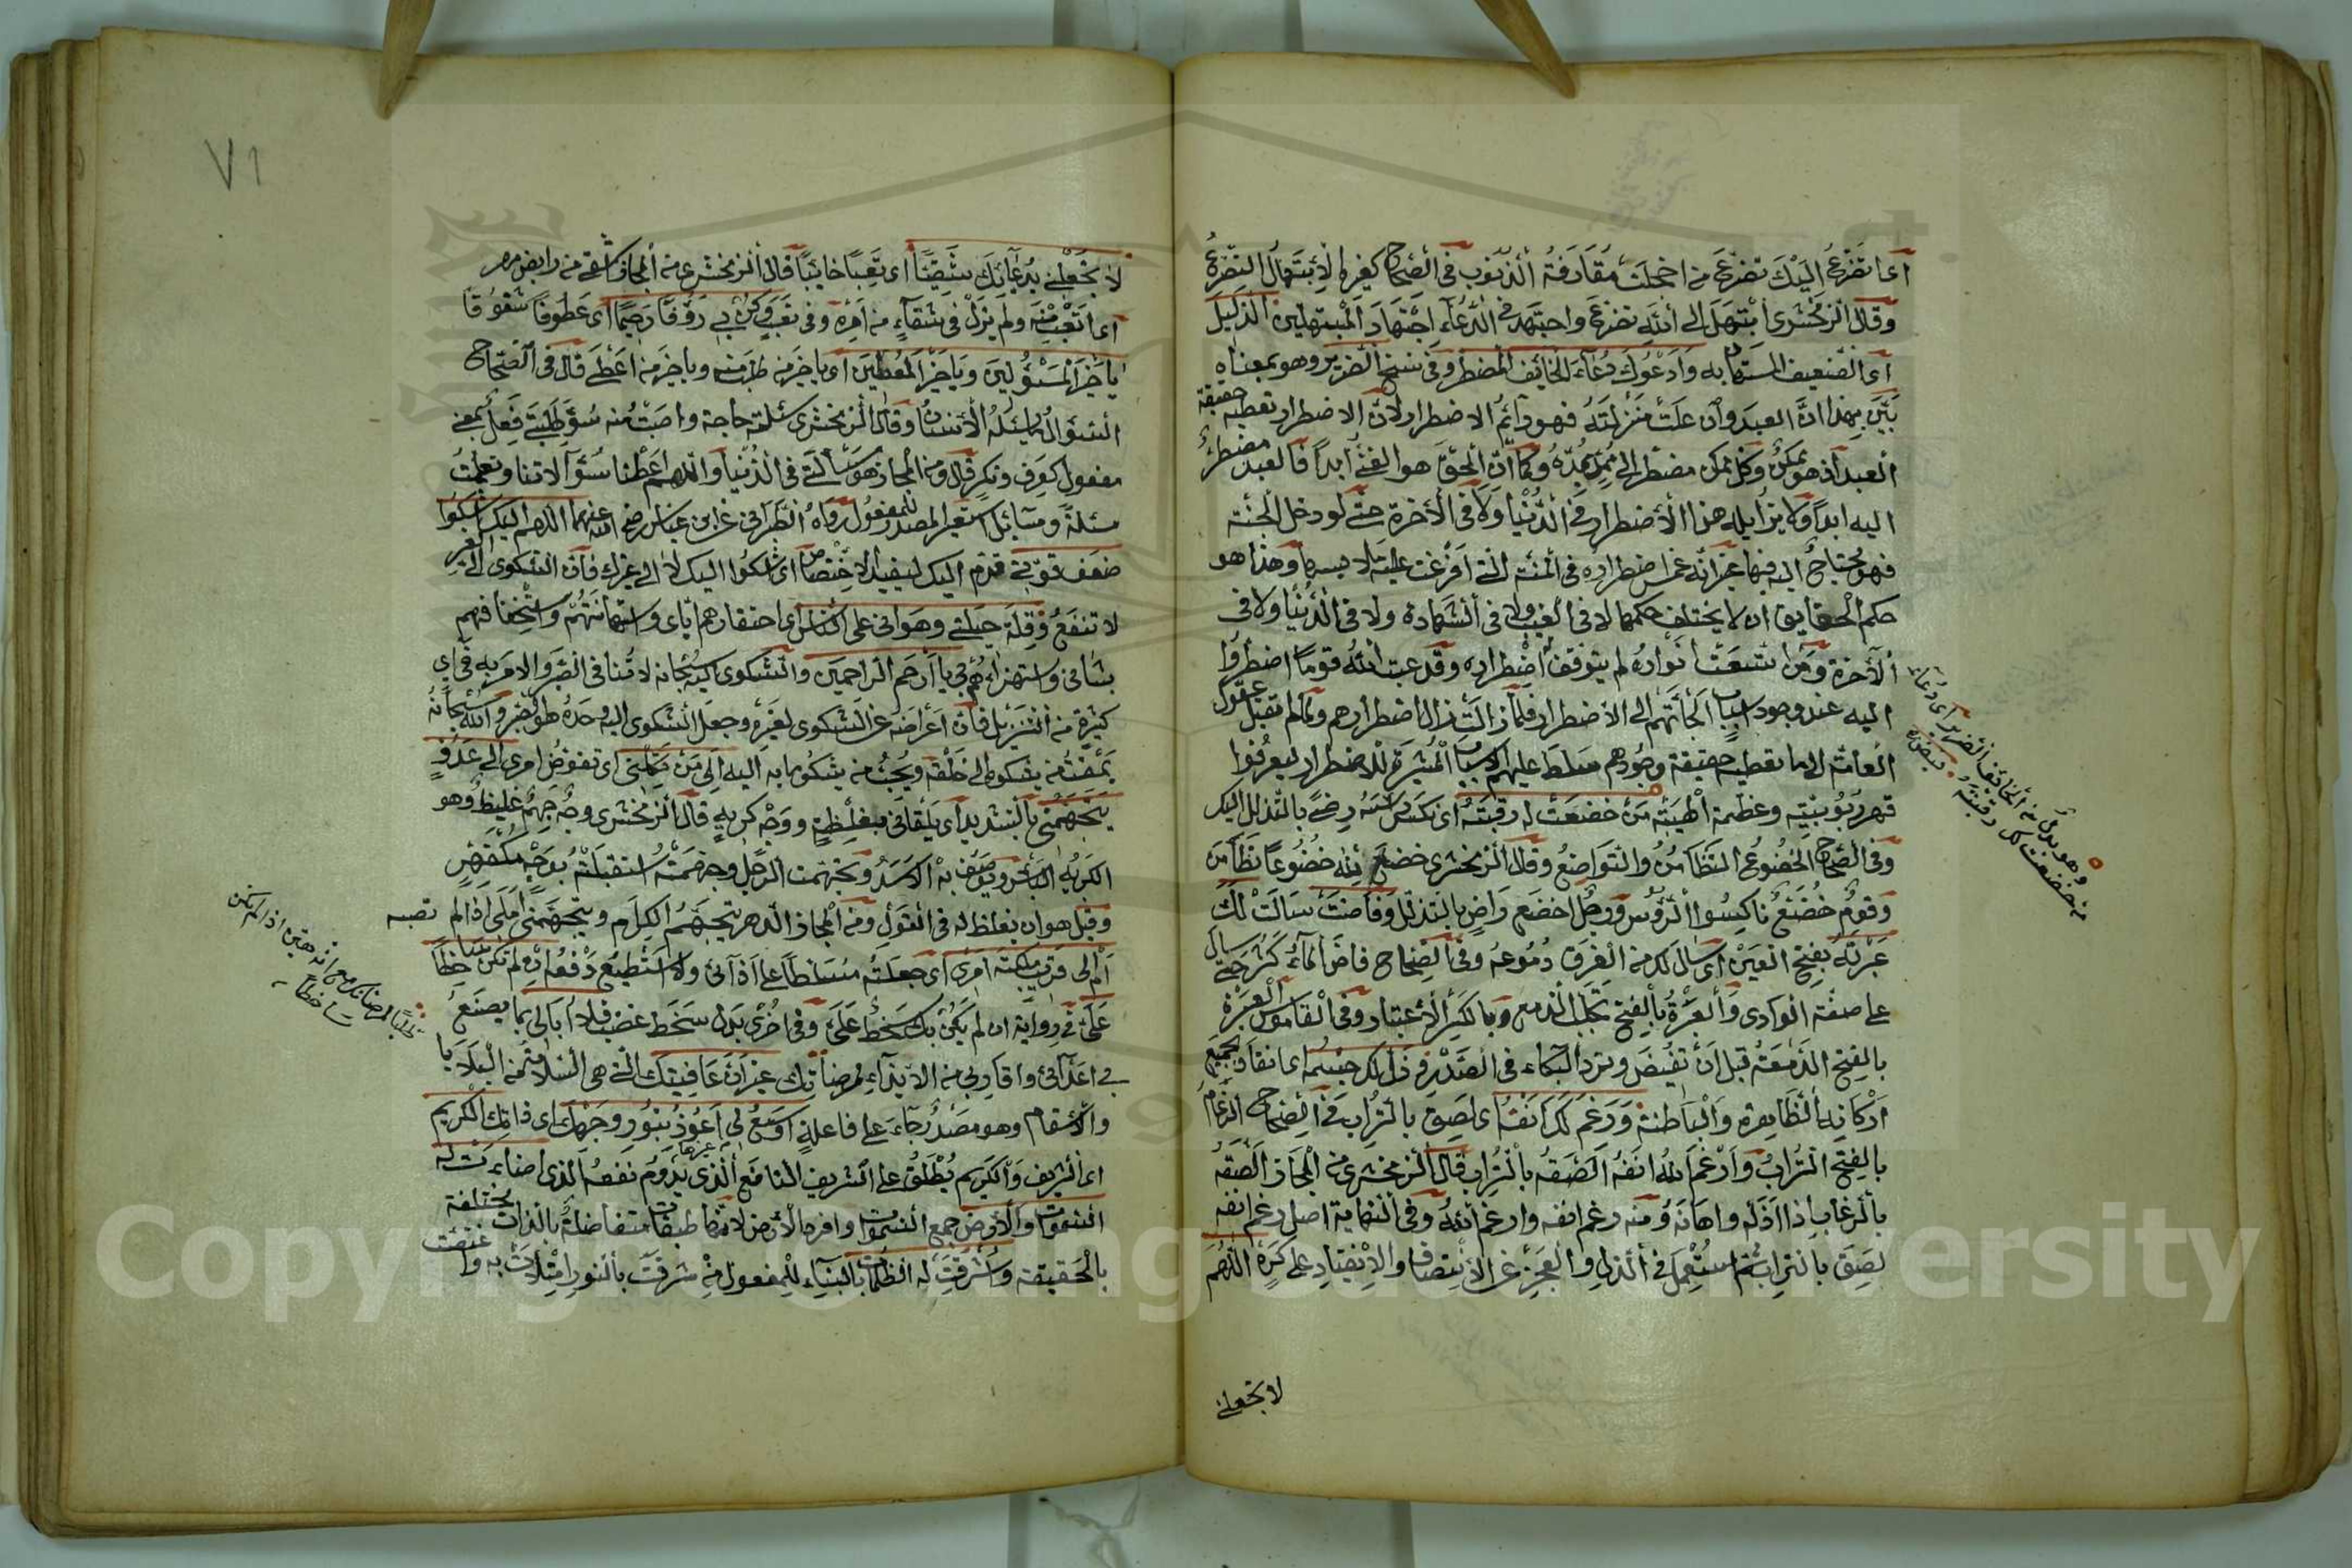 اى اتضرع اليك تضرع من اخجلته مقارفة الذنوب فى الصحاح كغيره الابتهال التضرع
وقال الزمخشرى ابتهل الى الله تضرع واجتهد فى الدعاء اجتهاد المبتهلين الذليل
اى الضعيف المستهان به وادعوك دعاء الخائف المضطر وفى نسخ الضرير وهو بمعناه
بين بهذا ان العبد وان علت منزلته فهو دائم الاضطرار لان الاضطرار تعطيه حقيقة
العبد اذ هو ممكن وكل ممكن مضطر الى ممد يمده وكما ان الحق هو الغنى ابدا فالعبد مضطر
اليه ابدا ولا يزايله هذا الاضطرار فى الدنيا ولا فى الاخرة حتى لو دخل الجنة
فهو محتاج اليه فيها غير انه غمس اضطراره فى المنة التى افرغت عليه ملابسها وهذا هو
حكم الحقايق ان لا يختلف حكمها لا فى الغيب ولا فى الشهادة ولا فى الدنيا ولا فى
الآخرة ومن اتسعت انواره لم يتوقف اضطراره وقد عيب الله قوما اضطروا
اليه عند وجود اسباب الجأتهم الى الاضطرار فلما زالت زال اضطرارهم ولما لم تقبل عقول
العامة الى ما تعطيه حقيقة وجودهم سلط عليهم الاسباب المثيرة للاضطرار ليعرفوا
قهر ربوبيته وعظمة الهيته من خضعت له رقبته اى نكس رأسه رضى بالتذلل اليك
وفى الصحاح الخضوع التطامن والتواضع وقال الزمخشرى خضع لله خضوعا تطامن
وقوم خضع ناكسوا الرؤس ورجل اخضع راض بالتذلل وفاضت سالت لك
عبرته بفتح العين اى سال لك من الفرق دموعه وفى الصحاح فاض الماء كثر حتى سال
على ضفة الوادى والعبرة بالفتح تحلب الدمع وبالكسر الاعتبار وفى القاموس العبرة
بالفتح الدمعة قبل ان تفيض وتردد البكاء فى الصدر وذل لك جسمه اى انقاد بجميع
اركانه الظاهرة والباطنة ورغم لك انفه اى لصق بالتراب فى الصحاح الرغام
بالفتح التراب وارغم الله انفه الصقه بالتراب قال الزمخشرى من المجاز الصقه
بالرغام اذا اذله واهانه ومنه رغم انفه وارغمه الله وفى النهاية اصل رغم انفه
لصق بالتراب ثم استعمل فى الذل والعجز عن الانتصاف والانقياد على كره اللهم
لا تجعلنى
وهو بدل من الخائف الضرير اى دعاء
من خضعت لك رقبته
٧١
لا تجعلنى بدعائك شقيا اى تعبا خائبا قال الزمخشرى من المجاز اشقى من رائض مهر
اى اتعب منه ولم يزل فى شقاء من امره وفى تعب وكن بى رؤفا رحيما اى عطوفا شفوقا
يا خير المسئولين ويا خير المعطين اى يا خير من طلب منه ويا خير من اعطى قال فى الصحاح
السؤال ما يسئله الانسان وقال الزمخشرى سئلته حاجة واصبت منه سؤلى طلبتى فعل بمعنى
مفعول كعرف ونكر قال ومن المجاز هو سألتى فى الدنيا واللهم اعطنا سؤالاتنا وتعلمت
مسئلة ومسائل استعير المصدر للمفعول رواه الطبرانى عن ابن عباس رضى الله عنهما اللهم اليك اشكوا
ضعف قوتى قدم اليك ليفيد الاختصاص اى اشكوا اليك لا الى غيرك فان الشكوى الى الغير
لا تنفع وقلة حيلتى وهوانى على الناس اى احتقارهم اياى واستهانتهم واستخفافهم
بشانى واستهزاءهم بى يا ارحم الراحمين والشكوى اليه سبحانه لا تنافى الصبر والامر به فى آى
كثيرة من التنزيل فان اعراضه عن الشكوى لغيره وجعل الشكوى اليه وحده هو الصبر والله سبحانه
يمقت من يشكوه الى خلقه ويحب من يشكو ما به اليه الى من تكلنى اى تفوض امرى الى عدو
يتجهمنى بالتشديد اى يلقانى بغلظة ووجه كريه قال الزمخشرى وجه جهم غليظ وهو
الكريه الباسر ويوصف به الاسد وتجهمت الرجل وجهمته استقبلته بوجه مكفهر
وقيل هو ان يغلظ له فى القول ومن المجاز الدهر يتجهم الكرام ويتجهمنى املى اذا لم تصبه
ام الى قريب ملكته امرى اى جعلته مسلطا على اذائى ولا استطيع دفعه ان لم تكن ساخطا
على فى رواية ان لم يكن بك سخط على وفى اخرى بدل سخط غضب فلا ابالى بما يصنع
بى اعدائى واقاربى من الايذاء لمرضاتك غير ان عافيتك التى هى السلامة من البلايا
والاسقام وهو مصدر جاء على فاعلة اوسع لى اعوذ بنور وجهك اى ذاتك الكريم
اى الشريف والكريم يطلق على الشريف النافع الذى يدوم نفعه الذى اضاءت له
السموات والارض جمع السموات وافرد الارض لانها طبقات متفاضلة بالذات مختلفة
بالحقيقة واشرقت له الظلمات بالبناء للمفعول من شرقت بالنور امتلأت به واغتصت
طلبا لمرضاتك اذا لم تكن
ساخطا